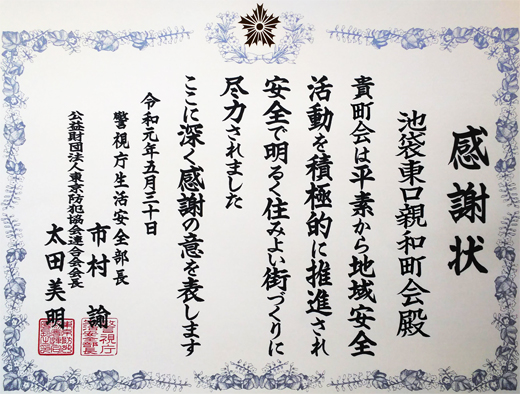 感謝状
池袋東口親和町会殿
貴町会は平素から地域安全
活動を積極的に推進され
安全で明るく住みよい街づくりに
尽力されました
ここに深く感謝の意を表します
令和元年五月三十日
警視庁生活安全部長
市村諭
公益財団法人東京防犯協会連合会会長
太田美明